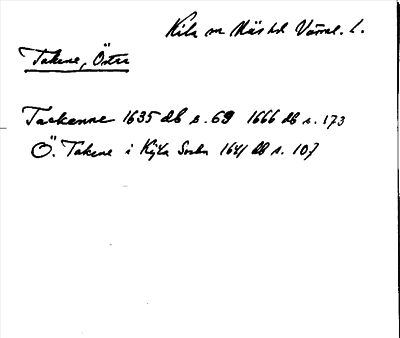 Kila sn Näs hd Värml. l.
Takene, Östra
Tackenne 1635 db s. 69 1666 db s. 173
Ö. Takene i Kijla Sockn 1641 db s. 107